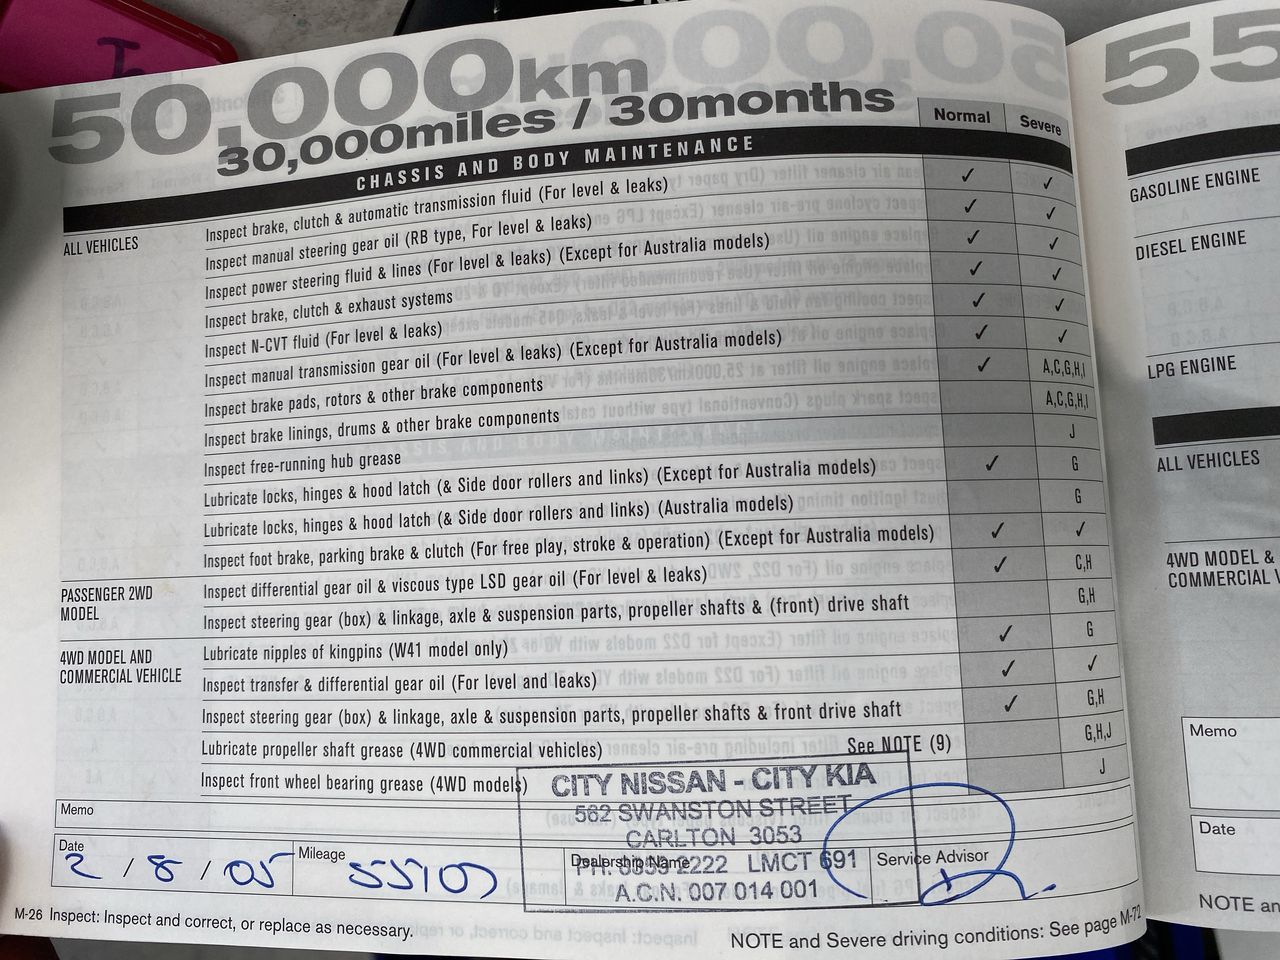 50,000km
30,000miles / 30months
Normal Severe
CHASSIS AND BODY MAINTENANCE
ALL VEHICLES Inspect brake, clutch & automatic transmission fluid (For level & leaks) ✓ ✓
Inspect manual steering gear oil (RB type, For level & leaks) ✓ ✓
Inspect power steering fluid & lines (For level & leaks) (Except for Australia models) ✓ ✓
Inspect brake, clutch & exhaust systems ✓ ✓
Inspect N-CVT fluid (For level & leaks) ✓ ✓
Inspect manual transmission gear oil (For level & leaks) (Except for Australia models) ✓ ✓
Inspect brake pads, rotors & other brake components ✓ A,C,G,H,I
Inspect brake linings, drums & other brake components A,C,G,H,I
Inspect free-running hub grease J
Lubricate locks, hinges & hood latch (& Side door rollers and links) (Except for Australia models) ✓ G
Lubricate locks, hinges & hood latch (& Side door rollers and links) (Australia models) G
Inspect foot brake, parking brake & clutch (For free play, stroke & operation) (Except for Australia models) ✓ ✓
PASSENGER 2WD MODEL Inspect differential gear oil & viscous type LSD gear oil (For level & leaks) ✓ C,H
Inspect steering gear (box) & linkage, axle & suspension parts, propeller shafts & (front) drive shaft G,H
4WD MODEL AND COMMERCIAL VEHICLE Lubricate nipples of kingpins (W41 model only) ✓ G
Inspect transfer & differential gear oil (For level and leaks) ✓ ✓
Inspect steering gear (box) & linkage, axle & suspension parts, propeller shafts & front drive shaft ✓ G,H
Lubricate propeller shaft grease (4WD commercial vehicles) See NOTE (9) G,H,J
Inspect front wheel bearing grease (4WD models) J
Memo
CITY NISSAN - CITY KIA
562 SWANSTON STREET
CARLTON 3053
2222 LMCT 691
A.C.N. 007 014 001
Date 2 / 8 / 05
Mileage
Dealership Name
Service Advisor
M-26 Inspect: Inspect and correct, or replace as necessary.
NOTE and Severe driving conditions: See page M-72
55
GASOLINE ENGINE
DIESEL ENGINE
LPG ENGINE
ALL VEHICLES
4WD MODEL &
COMMERCIAL
Memo
Date
NOTE